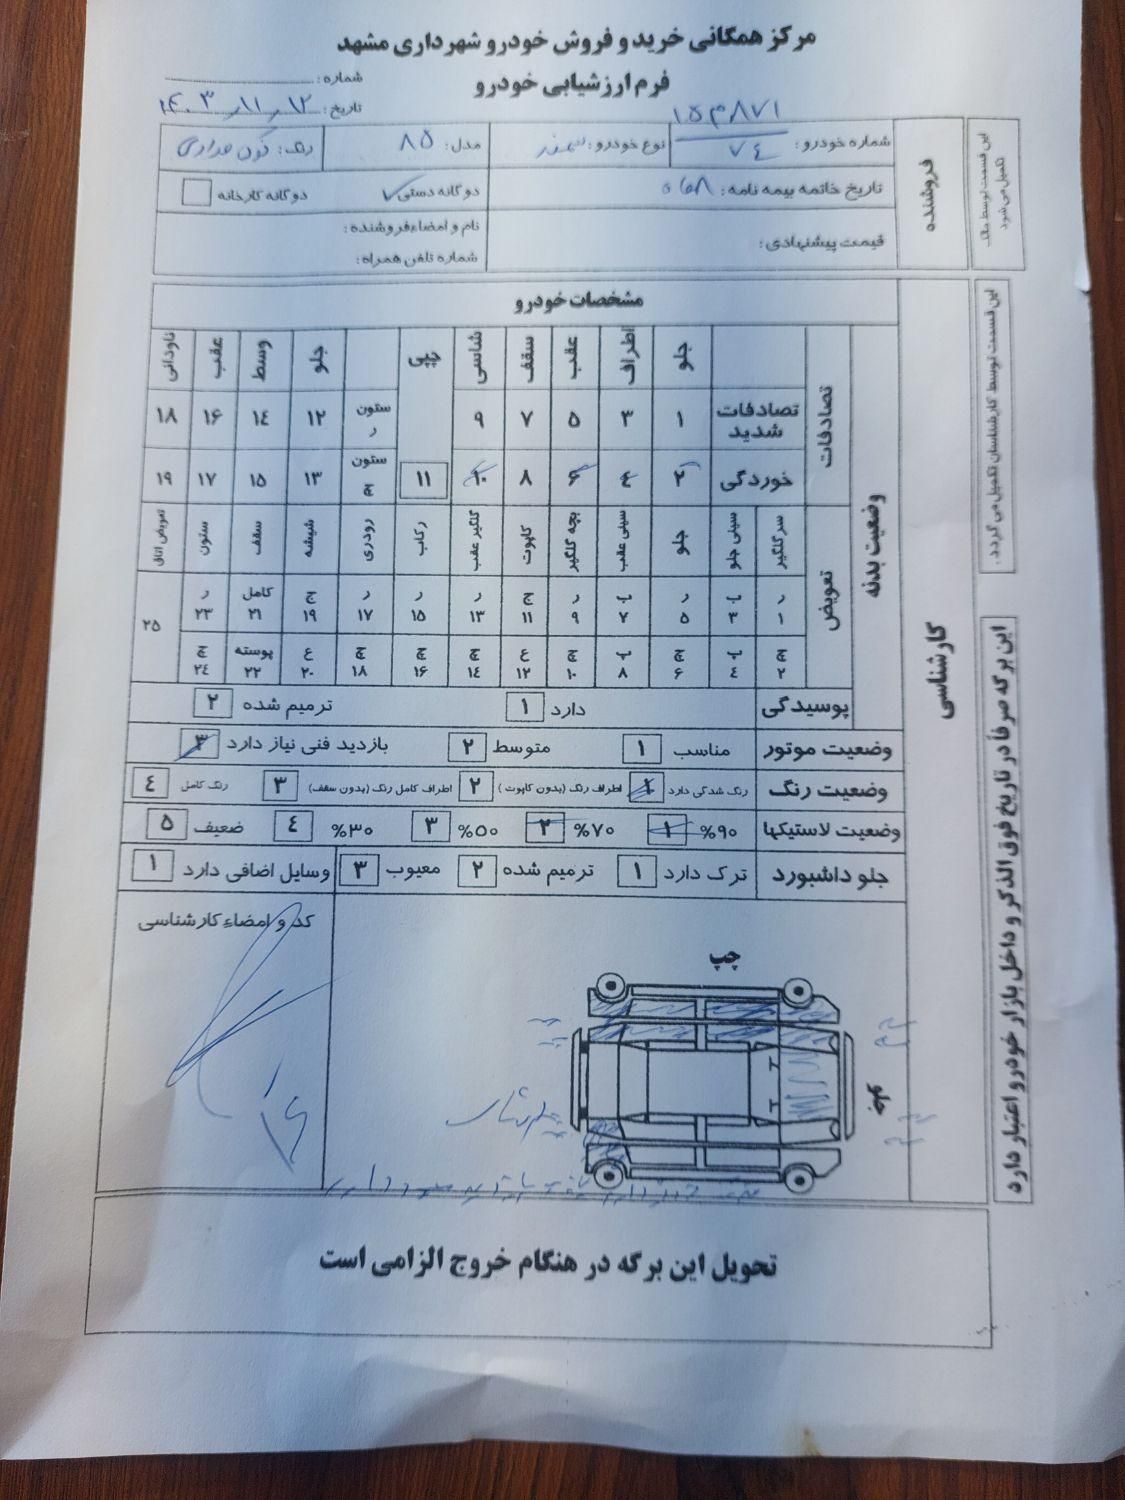 مرکز همگانی خرید و فروش خودرو شهرداری مشهد
فرم ارزشیابی خودرو
شماره :
تاریخ : ۱۴۰۳/۱۱/۱۲
این قسمت توسط مالک تکمیل می شود
فروشنده
شماره خودرو : ۱۵۳۸۷۱ / ۷۴ نوع خودرو : سمند مدل : ۸۵ رنگ :
تاریخ خاتمه بیمه نامه : دوگانه دستی ✓ دوگانه کارخانه
قیمت پیشنهادی : نام و امضاء فروشنده :
شماره تلفن همراه :
این قسمت توسط کارشناسان تکمیل می گردد .
کارشناسی
مشخصات خودرو
وضعیت بدنه
تصادفات جلو اطراف عقب سقف شاسی جلو وسط عقب ناودانی
تصادفات شدید ۱ ۳ ۵ ۷ ۹ ستون ر ۱۲ ۱۴ ۱۶ ۱۸
خوردگی ۲ ۴ ۶ ۸ ۱۰ ۱۱ ستون چ ۱۳ ۱۵ ۱۷ ۱۹
تعویض سرگلگیر سینی جلو جلو سینی عقب بچه گلگیر کاپوت گلگیر عقب رکاب رودری شیشه سقف ستون تعویض اتاق
ر ۱ ب ۳ ر ۵ ب ۷ ر ۹ ج ۱۱ ر ۱۳ ر ۱۵ ر ۱۷ ج ۱۹ کامل ۲۱ ر ۲۳ ۲۵
چ ۲ ب ۴ چ ۶ ب ۸ چ ۱۰ ع ۱۲ چ ۱۴ چ ۱۶ چ ۱۸ ع ۲۰ پوسته ۲۲ چ ۲۴
پوسیدگی دارد ۱ ترمیم شده ۲
وضعیت موتور مناسب ۱ متوسط ۲ بازدید فنی نیاز دارد ۳
وضعیت رنگ رنگ شدگی دارد ۱ اطراف رنگ (بدون کاپوت) ۲ اطراف کامل رنگ (بدون سقف) ۳ رنگ کامل ۴
وضعیت لاستیکها ۹۰% ۱ ۷۰% ۲ ۵۰% ۳ ۳۰% ۴ ضعیف ۵
جلو داشبورد ترک دارد ۱ ترمیم شده ۲ معیوب ۳ وسایل اضافی دارد ۱
کد و امضاء کارشناسی
چپ
این برگه صرفاً در تاریخ فوق الذکر و داخل بازار خودرو اعتبار دارد
تحویل این برگه در هنگام خروج الزامی است